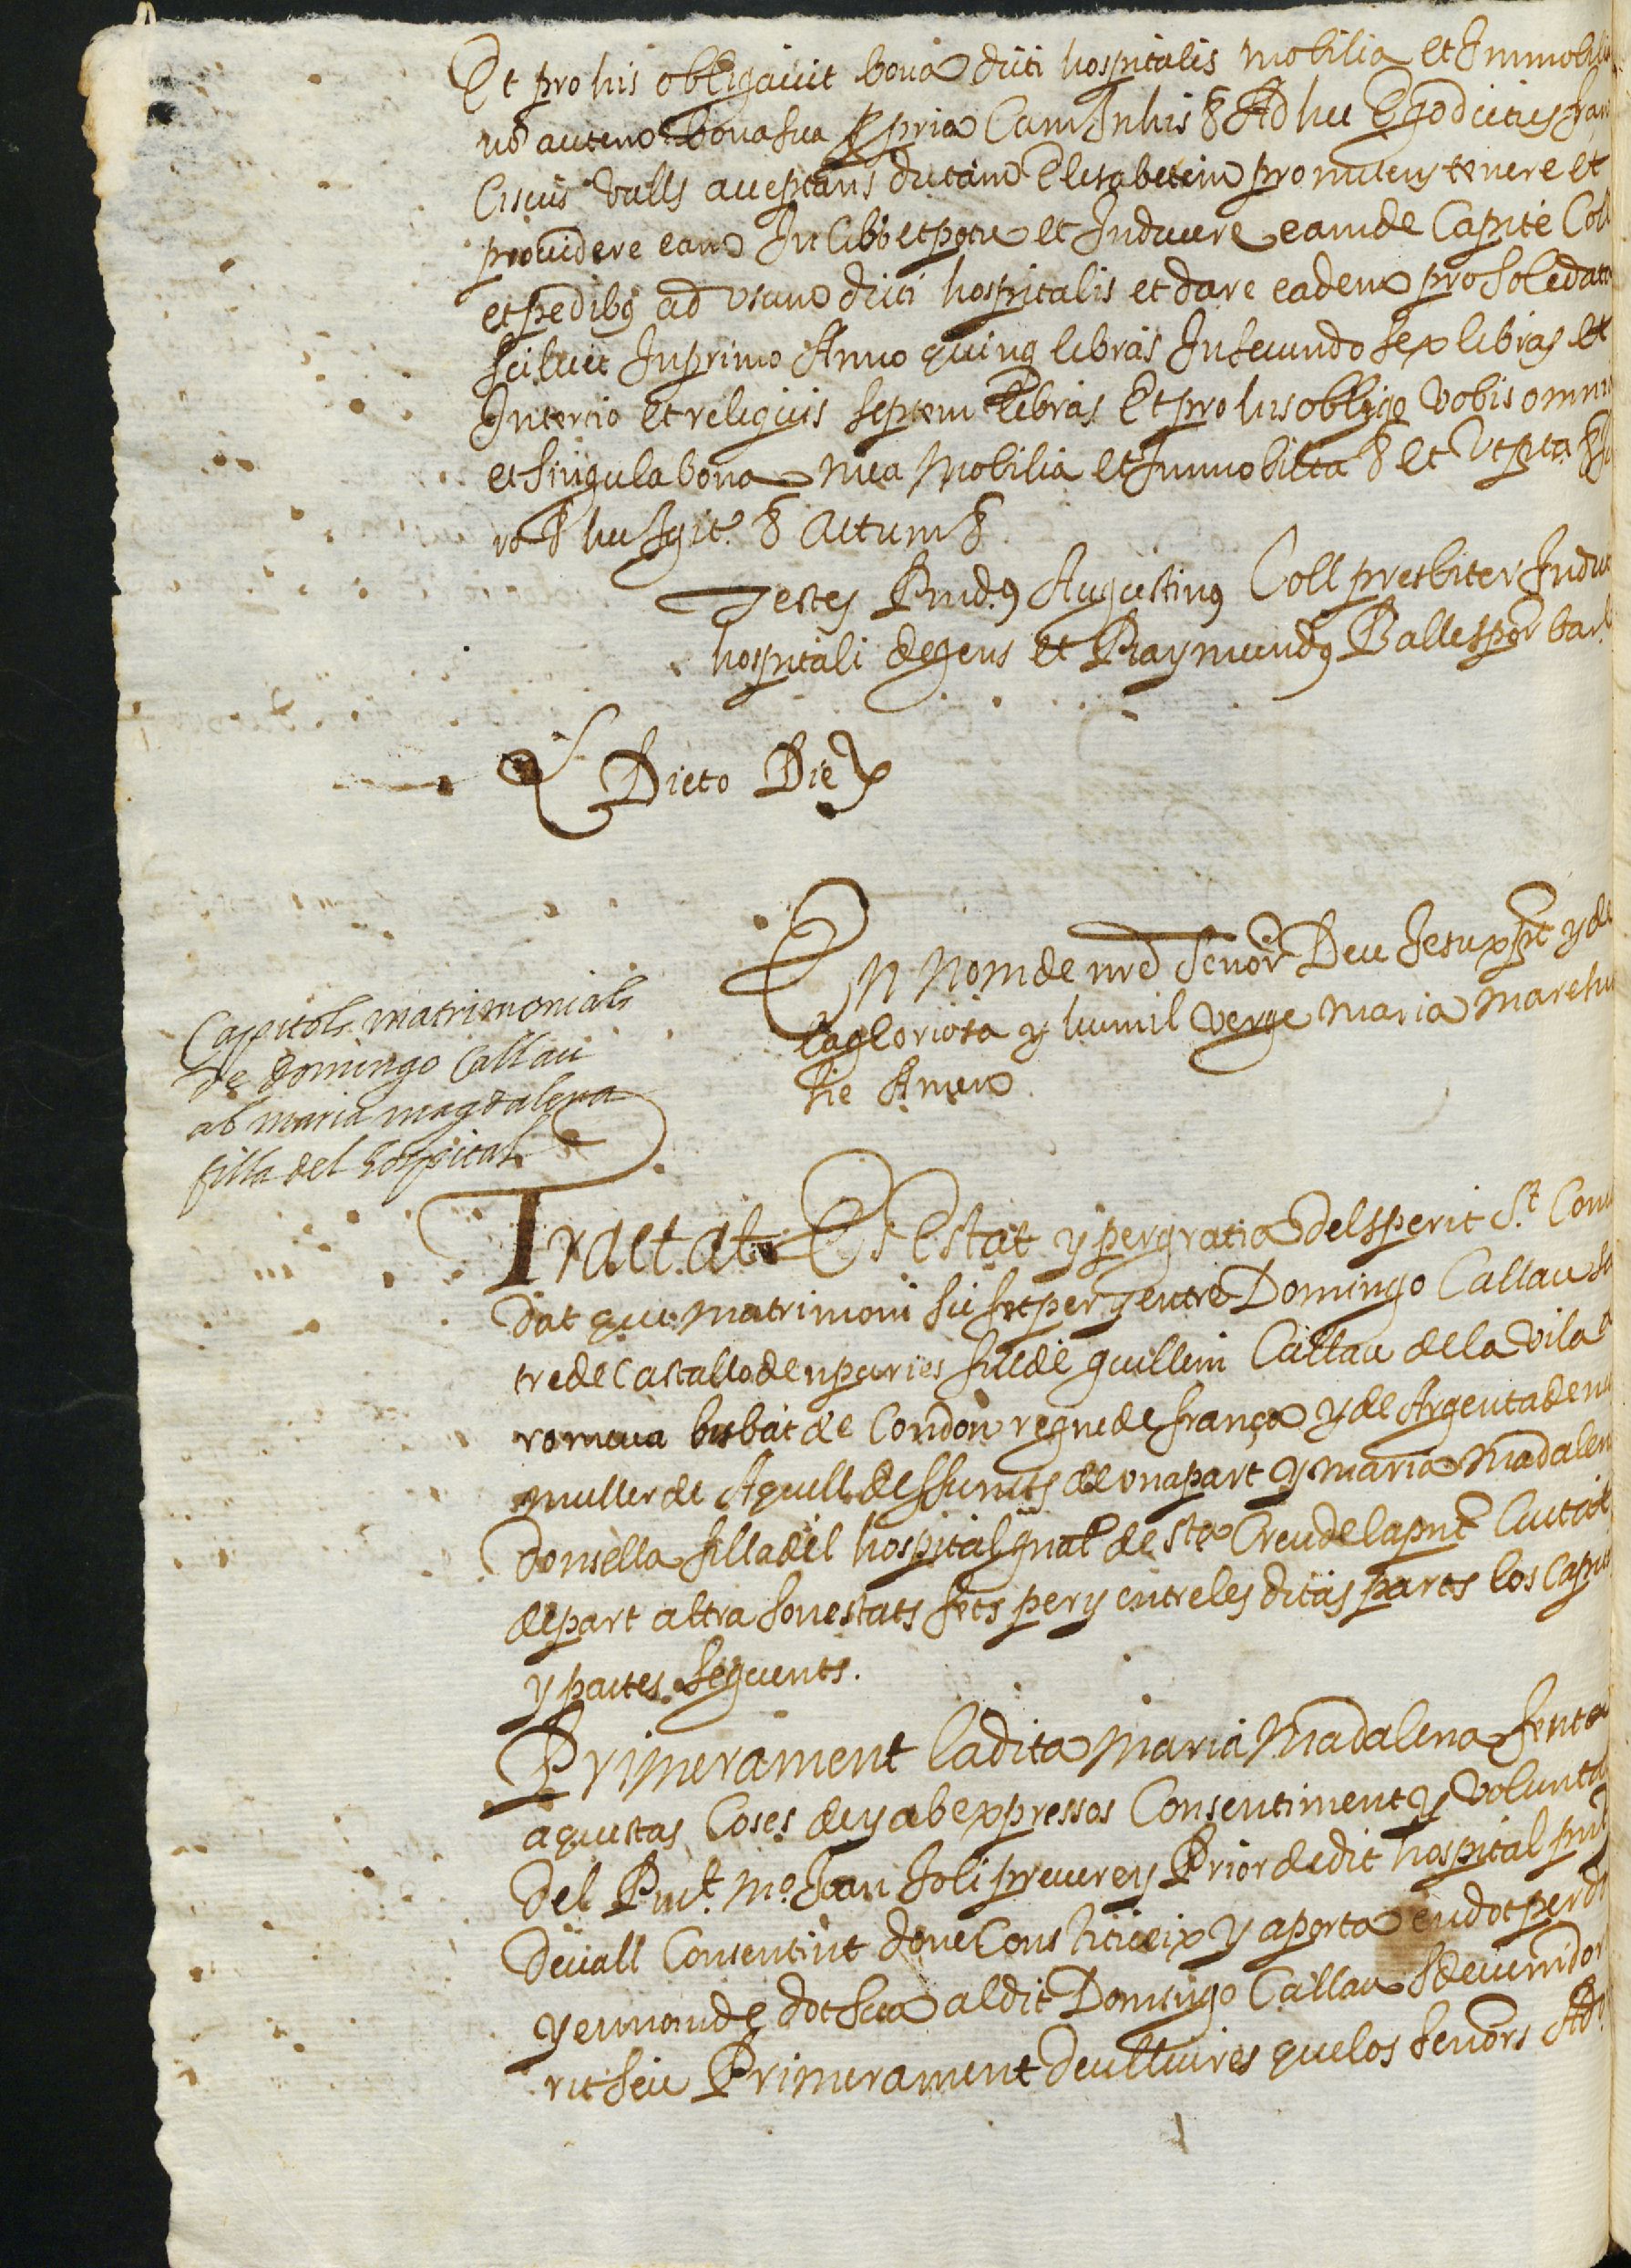 Et pro his obligavit bona dicti hospitalis mobilia et Immobilia
nō autem bona sua ppria Cum In his & Ad hec Ego dictus fran
ciscus Valls acceptans dictam Elisabetem promitens tenere et
providere eam In cibo et potu et Induere eam de Capite Coll
et pedibꝰ ad usum dicti hospitalis et dare eadem pro soledata
scilicet In primo Anno quinq libras In secundo sex libras et
In tercio et reliquis septem libras Et pro his obligo vobis omnia
et singula bona mea Mobilia et Immobilia & et Ut pta &
ro & hec Igit. & Actum &
Testes Rndꝰ Augustinꝰ Coll presbiter In dicto
hospitali degens et Raymundꝰ Ballespor
Dicto Die
En Nom de nr̄e Senor Deu Jesu xpt y de
la gloriosa y humil verge Maria Mare su
he Amen
Capitols matrimonials
de Domingo Callau
ab maria magdalena
filla del hospital
Tractat Es Estat y per gratia del sperit St. Con
dat que matrimoni sie fet per y entre Domingo Callau sa
tre de Castallo de enpuries fill de guillem Callau de la Vila d
romeua bisbat de Condon regne de frança y de Argenta den
muller de Aquell deffuncts de una part y Maria Madalen
Donsella filla del hospital gnal de Sta Creu de la pnt Ciutat
de part altra son estats fets per y entre les dites parts los Capitols
y pactes seguents.
Primerament la dita Maria Madalena fent
aquestas Coses de y ab expressos Consentiment y volunta
Del Rnt. Mo. Joan Joli prevere y Prior de dit hospital pnt
devall Consentint done Constitueix y aporta en dot per do
y en nom de dot sua al dit Domingo Callau sdevenidor
rit seu Primerament deu lliures que los senors Adr.